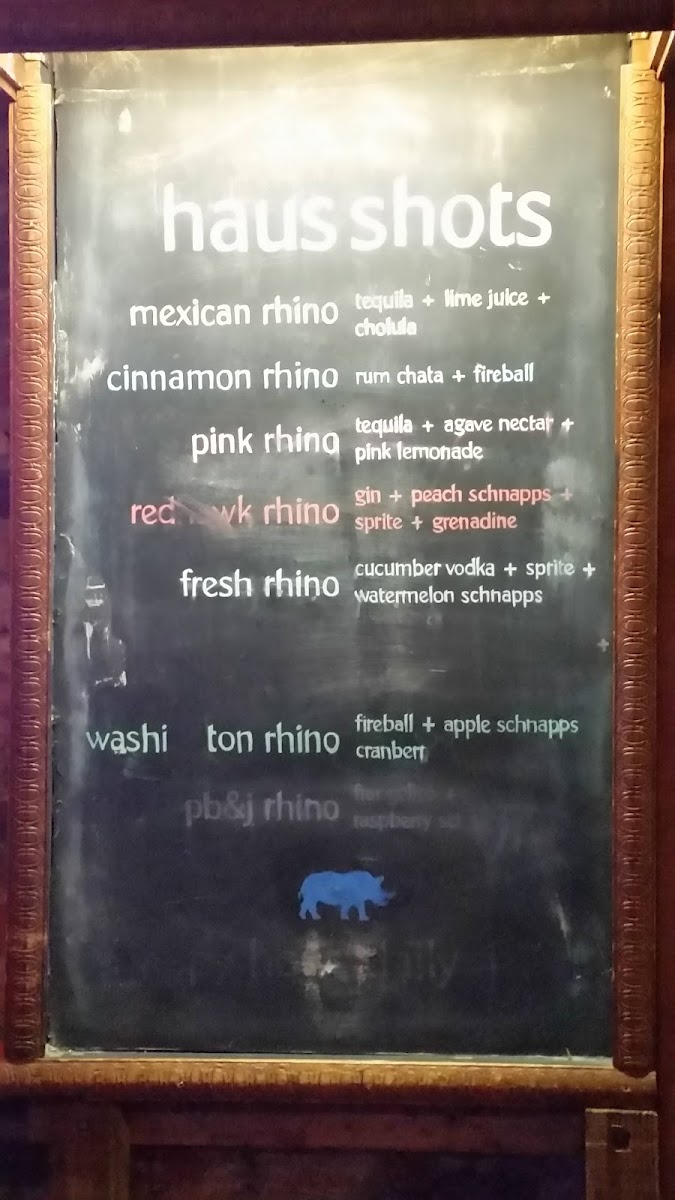 haus shots
mexican rhino tequila + lime juice +
cholula
cinnamon rhino rum chata + fireball
pink rhino tequila + agave nectar +
pink lemonade
red wk rhino gin + peach schnapps +
sprite + grenadine
fresh rhino cucumber vodka + sprite +
watermelon schnapps
washi ton rhino fireball + apple schnapps
cranberr
pb&j rhino
raspberry